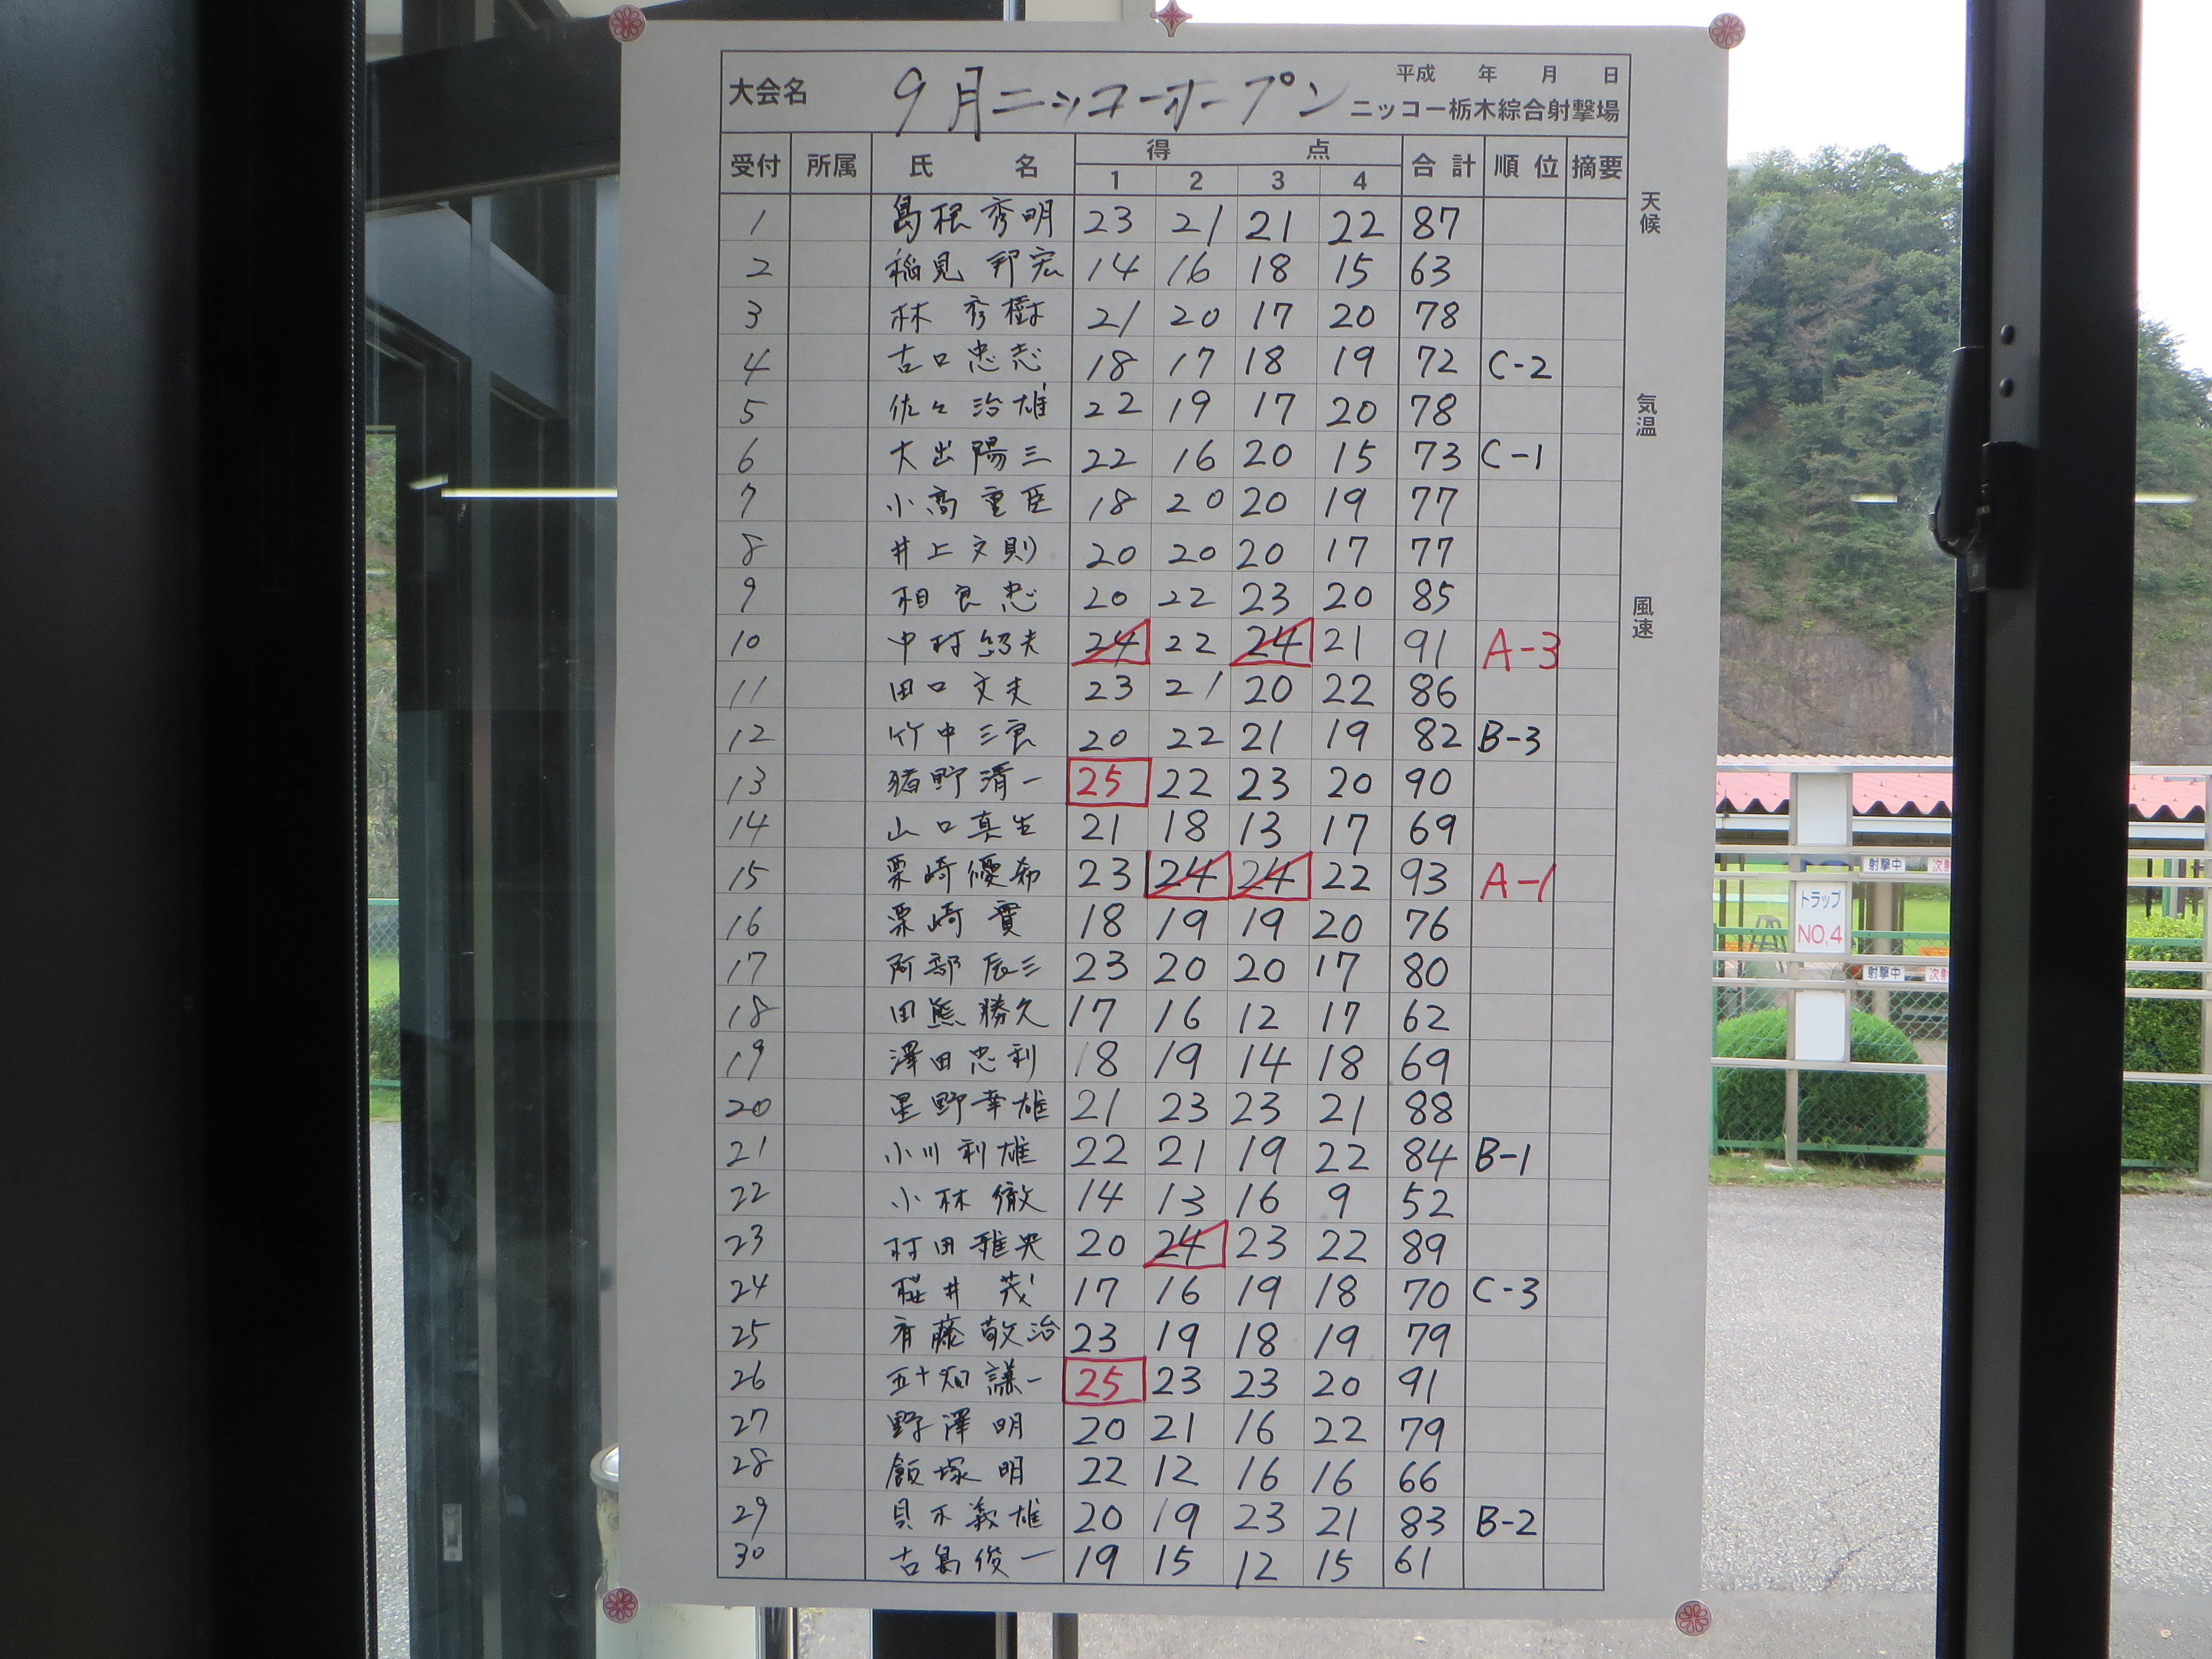 大会名 9月ニッコーオープン 平成 年 月 日
ニッコー栃木綜合射撃場
受付 所属 氏 名 得 点 合計 順位 摘要
1 2 3 4
1 島根秀明 23 21 21 22 87
2 稲見邦宏 14 16 18 15 63
3 林秀樹 21 20 17 20 78
4 古口忠志 18 17 18 19 72 C-2
5 佐々治雄 22 19 17 20 78
6 大出陽三 22 16 20 15 73 C-1
7 小髙重臣 18 20 20 19 77
8 井上文則 20 20 20 17 77
9 相良忠 20 22 23 20 85
10 中村昭夫 24 22 24 21 91 A-3
11 田口文夫 23 21 20 22 86
12 竹中三良 20 22 21 19 82 B-3
13 猪野清一 25 22 23 20 90
14 山口真生 21 18 13 17 69
15 栗崎優希 23 24 24 22 93 A-1
16 栗崎實 18 19 19 20 76
17 阿部辰三 23 20 20 17 80
18 田熊勝久 17 16 12 17 62
19 澤田忠利 18 19 14 18 69
20 星野幸雄 21 23 23 21 88
21 小川利雄 22 21 19 22 84 B-1
22 小林徹 14 13 16 9 52
23 村田雅央 20 24 23 22 89
24 桜井茂 17 16 19 18 70 C-3
25 斉藤敬治 23 19 18 19 79
26 五十畑謙一 25 23 23 20 91
27 野澤明 20 21 16 22 79
28 飯塚明 22 12 16 16 66
29 貝木義雄 20 19 23 21 83 B-2
30 古島俊一 19 15 12 15 61
天候
気温
風速
射撃中
トラップ
NO,4
射撃中